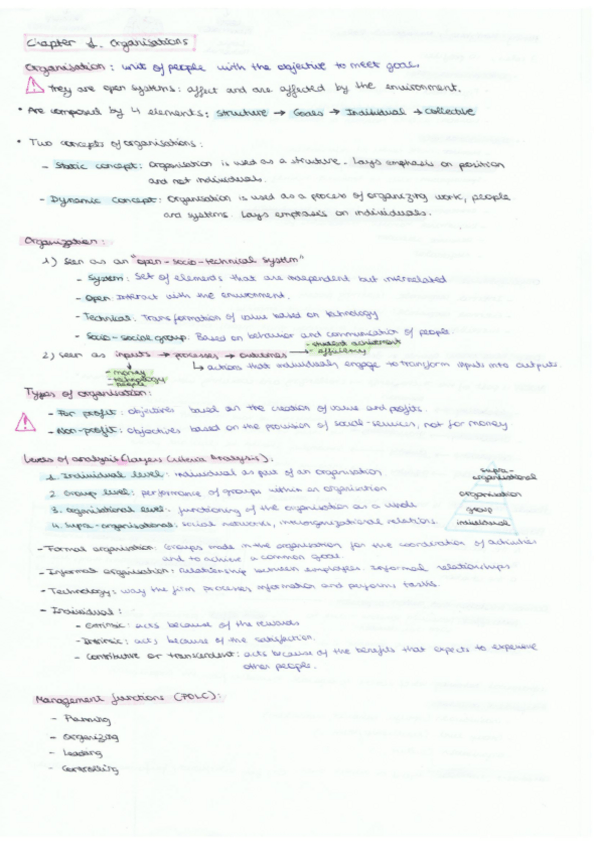 Chapter 1. Organisations
Organisation: unit of people with the objective to meet goals
They are open systems: affect and are affected by the environment.
• Are composed by 4 elements: Structure → Goals → Individual → Collective
• Two concepts of organisations:
- Static concept: Organisation is used as a structure. Lays emphasis on position
and not individuals.
- Dynamic concept: Organisation is used as a process of organizing work, people
and systems. Lays emphasis on individuals.
Organization:
1) Seen as an "open-socio-technical system"
- System: Set of elements that are independent but interrelated
- Open: Interact with the environment.
- Technical: Transformation of value based on technology
- Socio-social group: Based on behavior and communication of people.
2) Seen as inputs → processes → outcomes → - student achievement
- efficiency
- money
- technology
- people
↳ actions that individually engage to transform inputs into outputs
Types of organisation:
- For profit: objectives based on the creation of value and profits.
- Non-profit: objectives based on the provision of social-services, not for money
Levels of analysis (Layers Criteria Analysis):
1. Individual level: individual as part of an organisation
2. Group level: performance of groups within an organisation
3. Organisational level: functioning of the organisation as a whole
4. Supra-organisational: social networks, interorganizational relations
supra-
organisational
organisation
group
individual
- Formal organisation: Groups made in the organisation for the coordination of activities
and to achieve a common goal
- Informal organisation: Relationship between employees. Informal relationships
- Technology: way the firm processes information and performs tasks.
- Individual:
- Extrinsic: acts because of the rewards
- Intrinsic: acts because of the satisfaction.
- Contributive or transcendent: acts because of the benefits that expects to experience
other people.
Management functions (POLC):
- Planning
- Organizing
- Leading
- Controlling